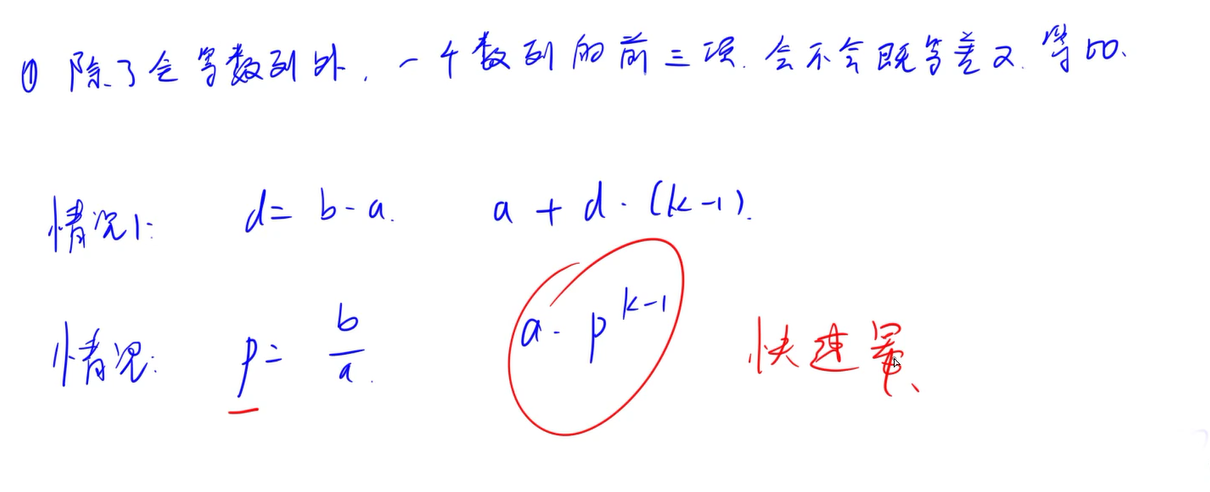 ① 除了全等数列外，一个数列的前三项.会不会既等差又.等比.
情况1: d= b-a. a + d·(k-1).
情况: p= b/a. a·p^{k-1} 快速幂、